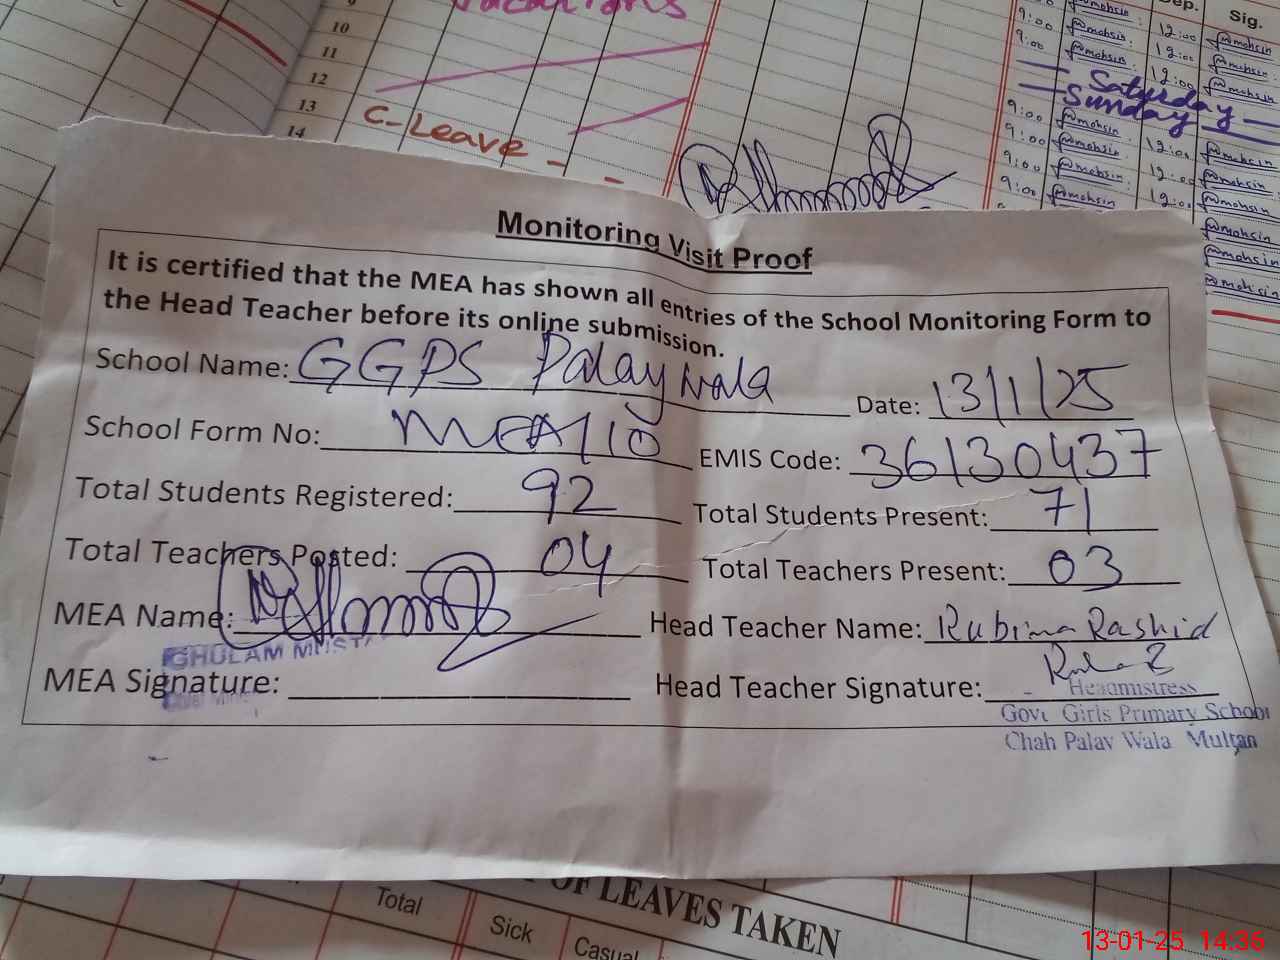 10
11
12
13
14
C-Leave -
Sig.
9:00 mohsin 12:00 mohsin
9:00 mohsin 12:00 mohsin
Saturday
Sunday
9:00 mohsin 12:00 mohsin
9:00 mohsin 12:00 mohsin
9:00 mohsin 12:00 mohsin
9:00 mohsin 12:00 mohsin
Monitoring Visit Proof
It is certified that the MEA has shown all entries of the School Monitoring Form to
the Head Teacher before its online submission.
School Name: GGPS Palaywala Date: 13/1/25
School Form No: MEA/10 EMIS Code: 36130437
Total Students Registered: 92 Total Students Present: 71
Total Teachers Posted: 04 Total Teachers Present: 03
MEA Name: Head Teacher Name: Rubina Rashid
GHULAM MUSTA
MEA Signature: Head Teacher Signature:
Headmistress
Govt Girls Primary School
Chah Palay Wala Multan
OF LEAVES TAKEN
Total
Sick
Casual
13-01-25 14:36